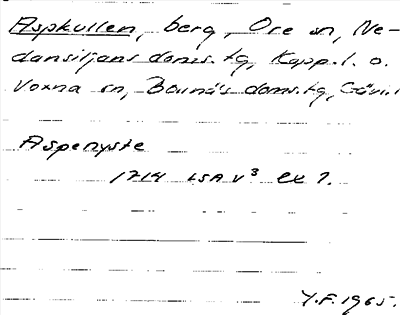 Aspkullen, berg, Ore sn, Ne-
dansiljans doms. tg, Kopp. l. o.
Voxna sn, Bollnäs doms. tg, Gävl. l
Aspenyste
1714 LSA V³ ex 7.
Y.F. 1965.